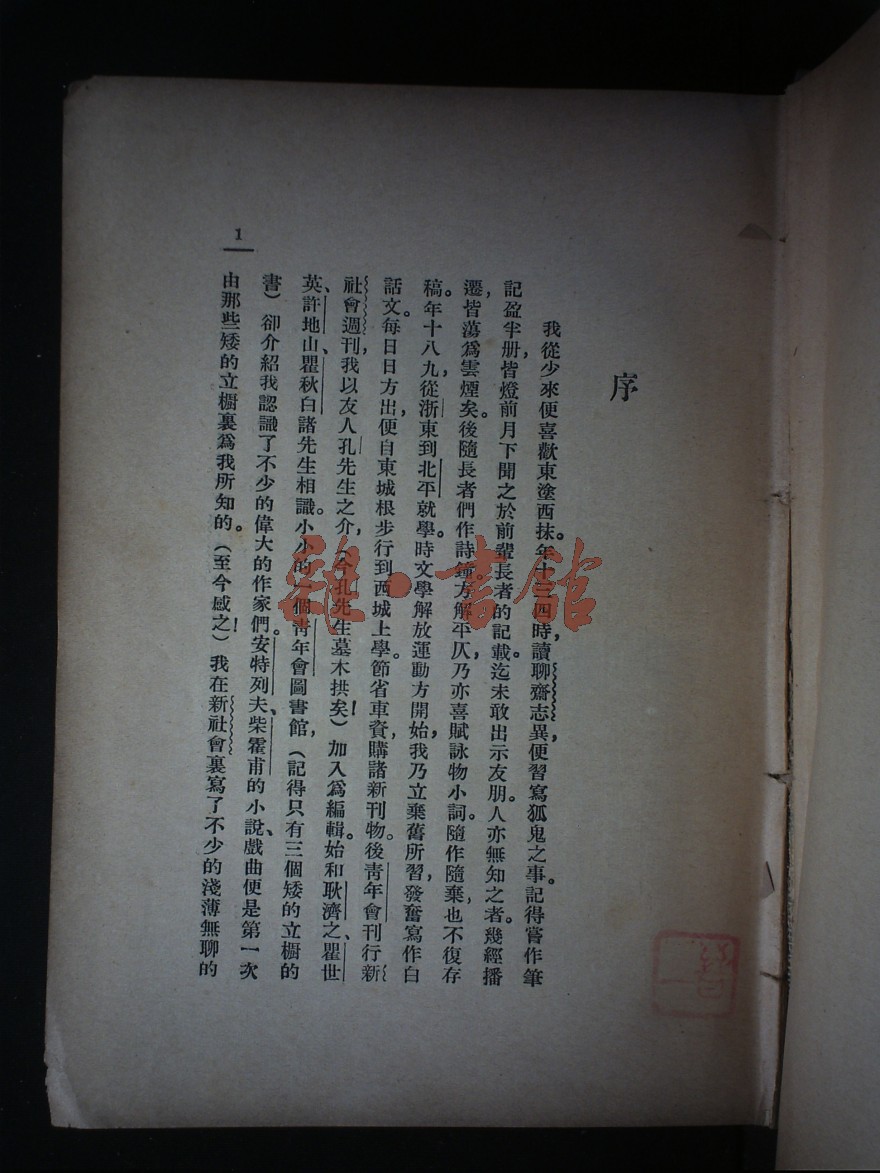 序
我從少來便喜歡東塗西抹。年十三四時,讀聊齋志異,便習寫狐鬼之事。記得嘗作筆
記盈半册,皆燈前月下聞之於前輩長者的記載。迄未敢出示友朋。人亦無知之者。幾經播
遷,皆蕩爲雲煙矣。後隨長者們作詩鐘,方解平仄,乃亦喜賦詠物小詞。隨作隨棄,也不復存
稿。年十八九,從浙東到北平就學。時文學解放運動方開始,我乃立棄舊所習,發奮寫作白
話文。每日日方出,便自東城根步行到西城上學。節省車資,購諸新刊物。後靑年會刊行新
社會週刊,我以友人孔先生之介,(今孔先生墓木拱矣!)加入爲編輯。始和耿濟之、瞿世
英、許地山、瞿秋白諸先生相識。小小的一個靑年會圖書館,(記得只有三個矮的立櫥的
書)卻介紹我認識了不少的偉大的作家們。安特列夫、柴霍甫的小說、戲曲便是第一次
由那些矮的立櫥裏爲我所知的。(至今感之!)我在新社會裏寫了不少的淺薄無聊的
1
雜·書館